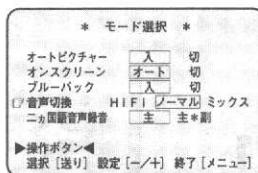 * モード選択 *
オートピクチャー 入 切
オンスクリーン オート 切
ブルーバック 入 切
☞音声切換 HiFi ノーマル ミックス
ニヵ国語音声録音 主 主*副
▶操作ボタン◀
選択[送り] 設定[-/+] 終了[メニュー]